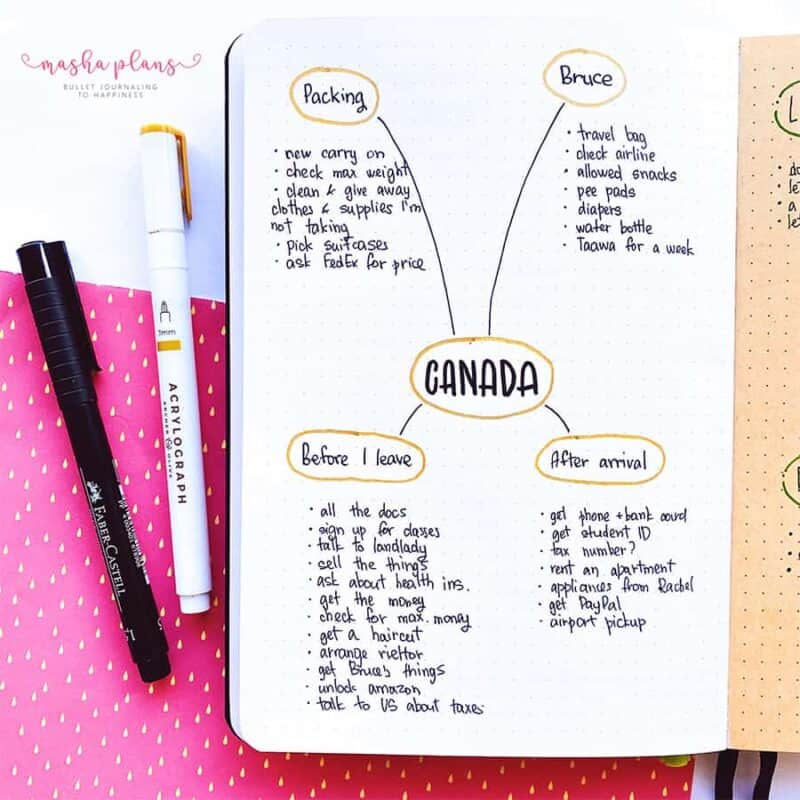 masha plans
BULLET JOURNALING
TO HAPPINESS
Packing
· new carry on
· check max weight
· clean & give away
clothes & supplies I'm
not taking
· pick suitcases
· ask FedEx for price
Bruce
· travel bag
· check airline
· allowed snacks
· pee pads
· diapers
· water bottle
· Taawa for a week
CANADA
Before I leave
· all the docs
· sign up for classes
· talk to landlady
· sell the things
· ask about health ins.
· get the money
· check for max. money
· get a haircut
· arrange rieltor
· get Bruce's things
· unlock amazon
· talk to US about taxes
After arrival
· get phone + bank
· get student ID
· tax number?
· rent an apartment
· appliances from Rachel
· get PayPal
· airport pickup
L
· do
· le
· a
· le
1mm
ACRYLOGRAPH
ARCHER & OLIVE
FABER-CASTELL